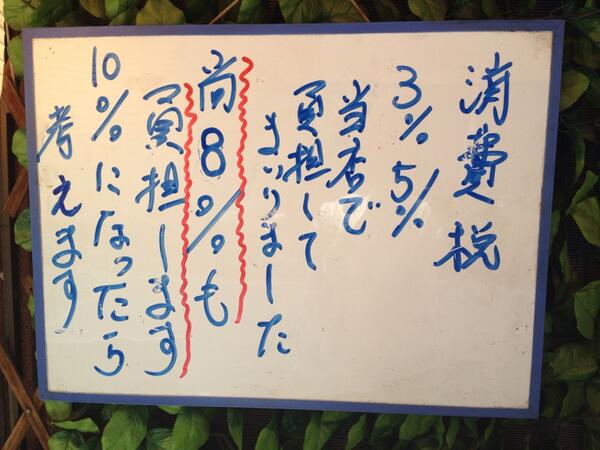 消費税
3% 5%
当店で
負担して
まいりました
尚8%も
負担します
10%になったら
考えます